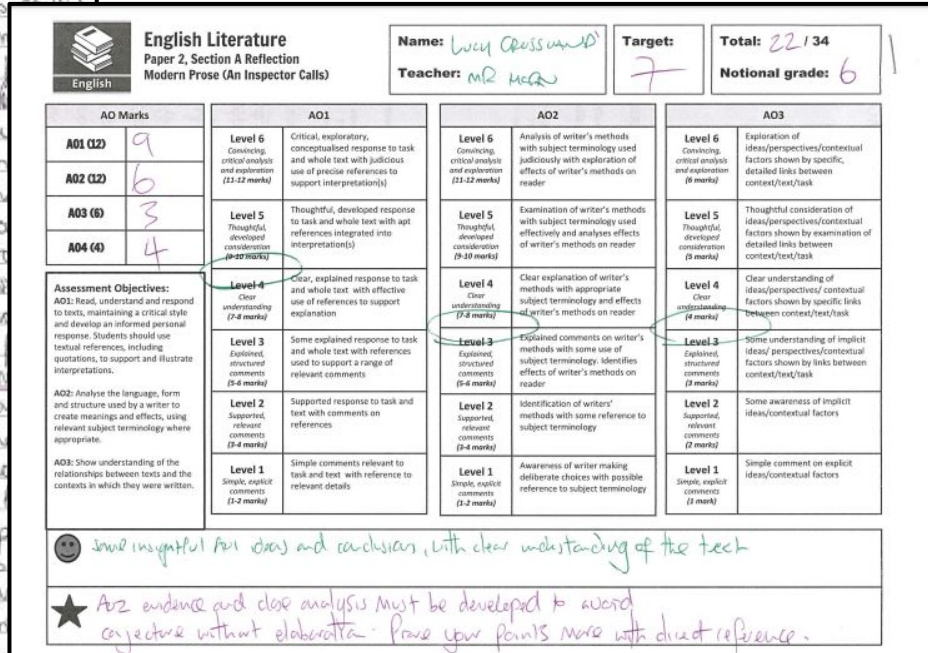 English
English Literature
Paper 2, Section A Reflection
Modern Prose (An Inspector Calls)
Name: Lucy
Teacher: MR
Target:
7
Total: 22 / 34
Notional grade: 6
AO Marks
AO1 (12) 9
AO2 (12) 6
AO3 (6) 3
AO4 (4) 4
Assessment Objectives:
AO1: Read, understand and respond
to texts, maintaining a critical style
and develop an informed personal
response. Students should use
textual references, including
quotations, to support and illustrate
interpretations.
AO2: Analyse the language, form
and structure used by a writer to
create meanings and effects, using
relevant subject terminology where
appropriate.
AO3: Show understanding of the
relationships between texts and the
contexts in which they were written.
AO1
Level 6
Convincing,
critical analysis
and exploration
(11-12 marks)
Critical, exploratory,
conceptualised response to task
and whole text with judicious
use of precise references to
support interpretation(s)
Level 5
Thoughtful,
developed
consideration
(9-10 marks)
Thoughtful, developed response
to task and whole text with apt
references integrated into
interpretation(s)
Level 4
Clear
understanding
(7-8 marks)
Clear, explained response to task
and whole text with effective
use of references to support
explanation
Level 3
Explained,
structured
comments
(5-6 marks)
Some explained response to task
and whole text with references
used to support a range of
relevant comments
Level 2
Supported,
relevant
comments
(3-4 marks)
Supported response to task and
text with comments on
references
Level 1
Simple, explicit
comments
(1-2 marks)
Simple comments relevant to
task and text with reference to
relevant details
AO2
Level 6
Convincing,
critical analysis
and exploration
(11-12 marks)
Analysis of writer's methods
with subject terminology used
judiciously with exploration of
effects of writer's methods on
reader
Level 5
Thoughtful,
developed
consideration
(9-10 marks)
Examination of writer's methods
with subject terminology used
effectively and analyses effects
of writer's methods on reader
Level 4
Clear
understanding
(7-8 marks)
Clear explanation of writer's
methods with appropriate
subject terminology and effects
of writer's methods on reader
Level 3
Explained,
structured
comments
(5-6 marks)
Explained comments on writer's
methods with some use of
subject terminology. Identifies
effects of writer's methods on
reader
Level 2
Supported,
relevant
comments
(3-4 marks)
Identification of writers'
methods with some reference to
subject terminology
Level 1
Simple, explicit
comments
(1-2 marks)
Awareness of writer making
deliberate choices with possible
reference to subject terminology
AO3
Level 6
Convincing,
critical analysis
and exploration
(6 marks)
Exploration of
ideas/perspectives/contextual
factors shown by specific,
detailed links between
context/text/task
Level 5
Thoughtful,
developed
consideration
(5 marks)
Thoughtful consideration of
ideas/perspectives/contextual
factors shown by examination of
detailed links between
context/text/task
Level 4
Clear
understanding
(4 marks)
Clear understanding of
ideas/perspectives/ contextual
factors shown by specific links
between context/text/task
Level 3
Explained,
structured
comments
(3 marks)
Some understanding of implicit
ideas/ perspectives/contextual
factors shown by links between
context/text/task
Level 2
Supported,
relevant
comments
(2 marks)
Some awareness of implicit
ideas/contextual factors
Level 1
Simple, explicit
comments
(1 mark)
Simple comment on explicit
ideas/contextual factors
some insightful AO1 ideas and conclusions, with clear understanding of the text
AO2 evidence and close analysis must be developed to avoid
conjecture without elaboration. Prove your points more with direct reference.